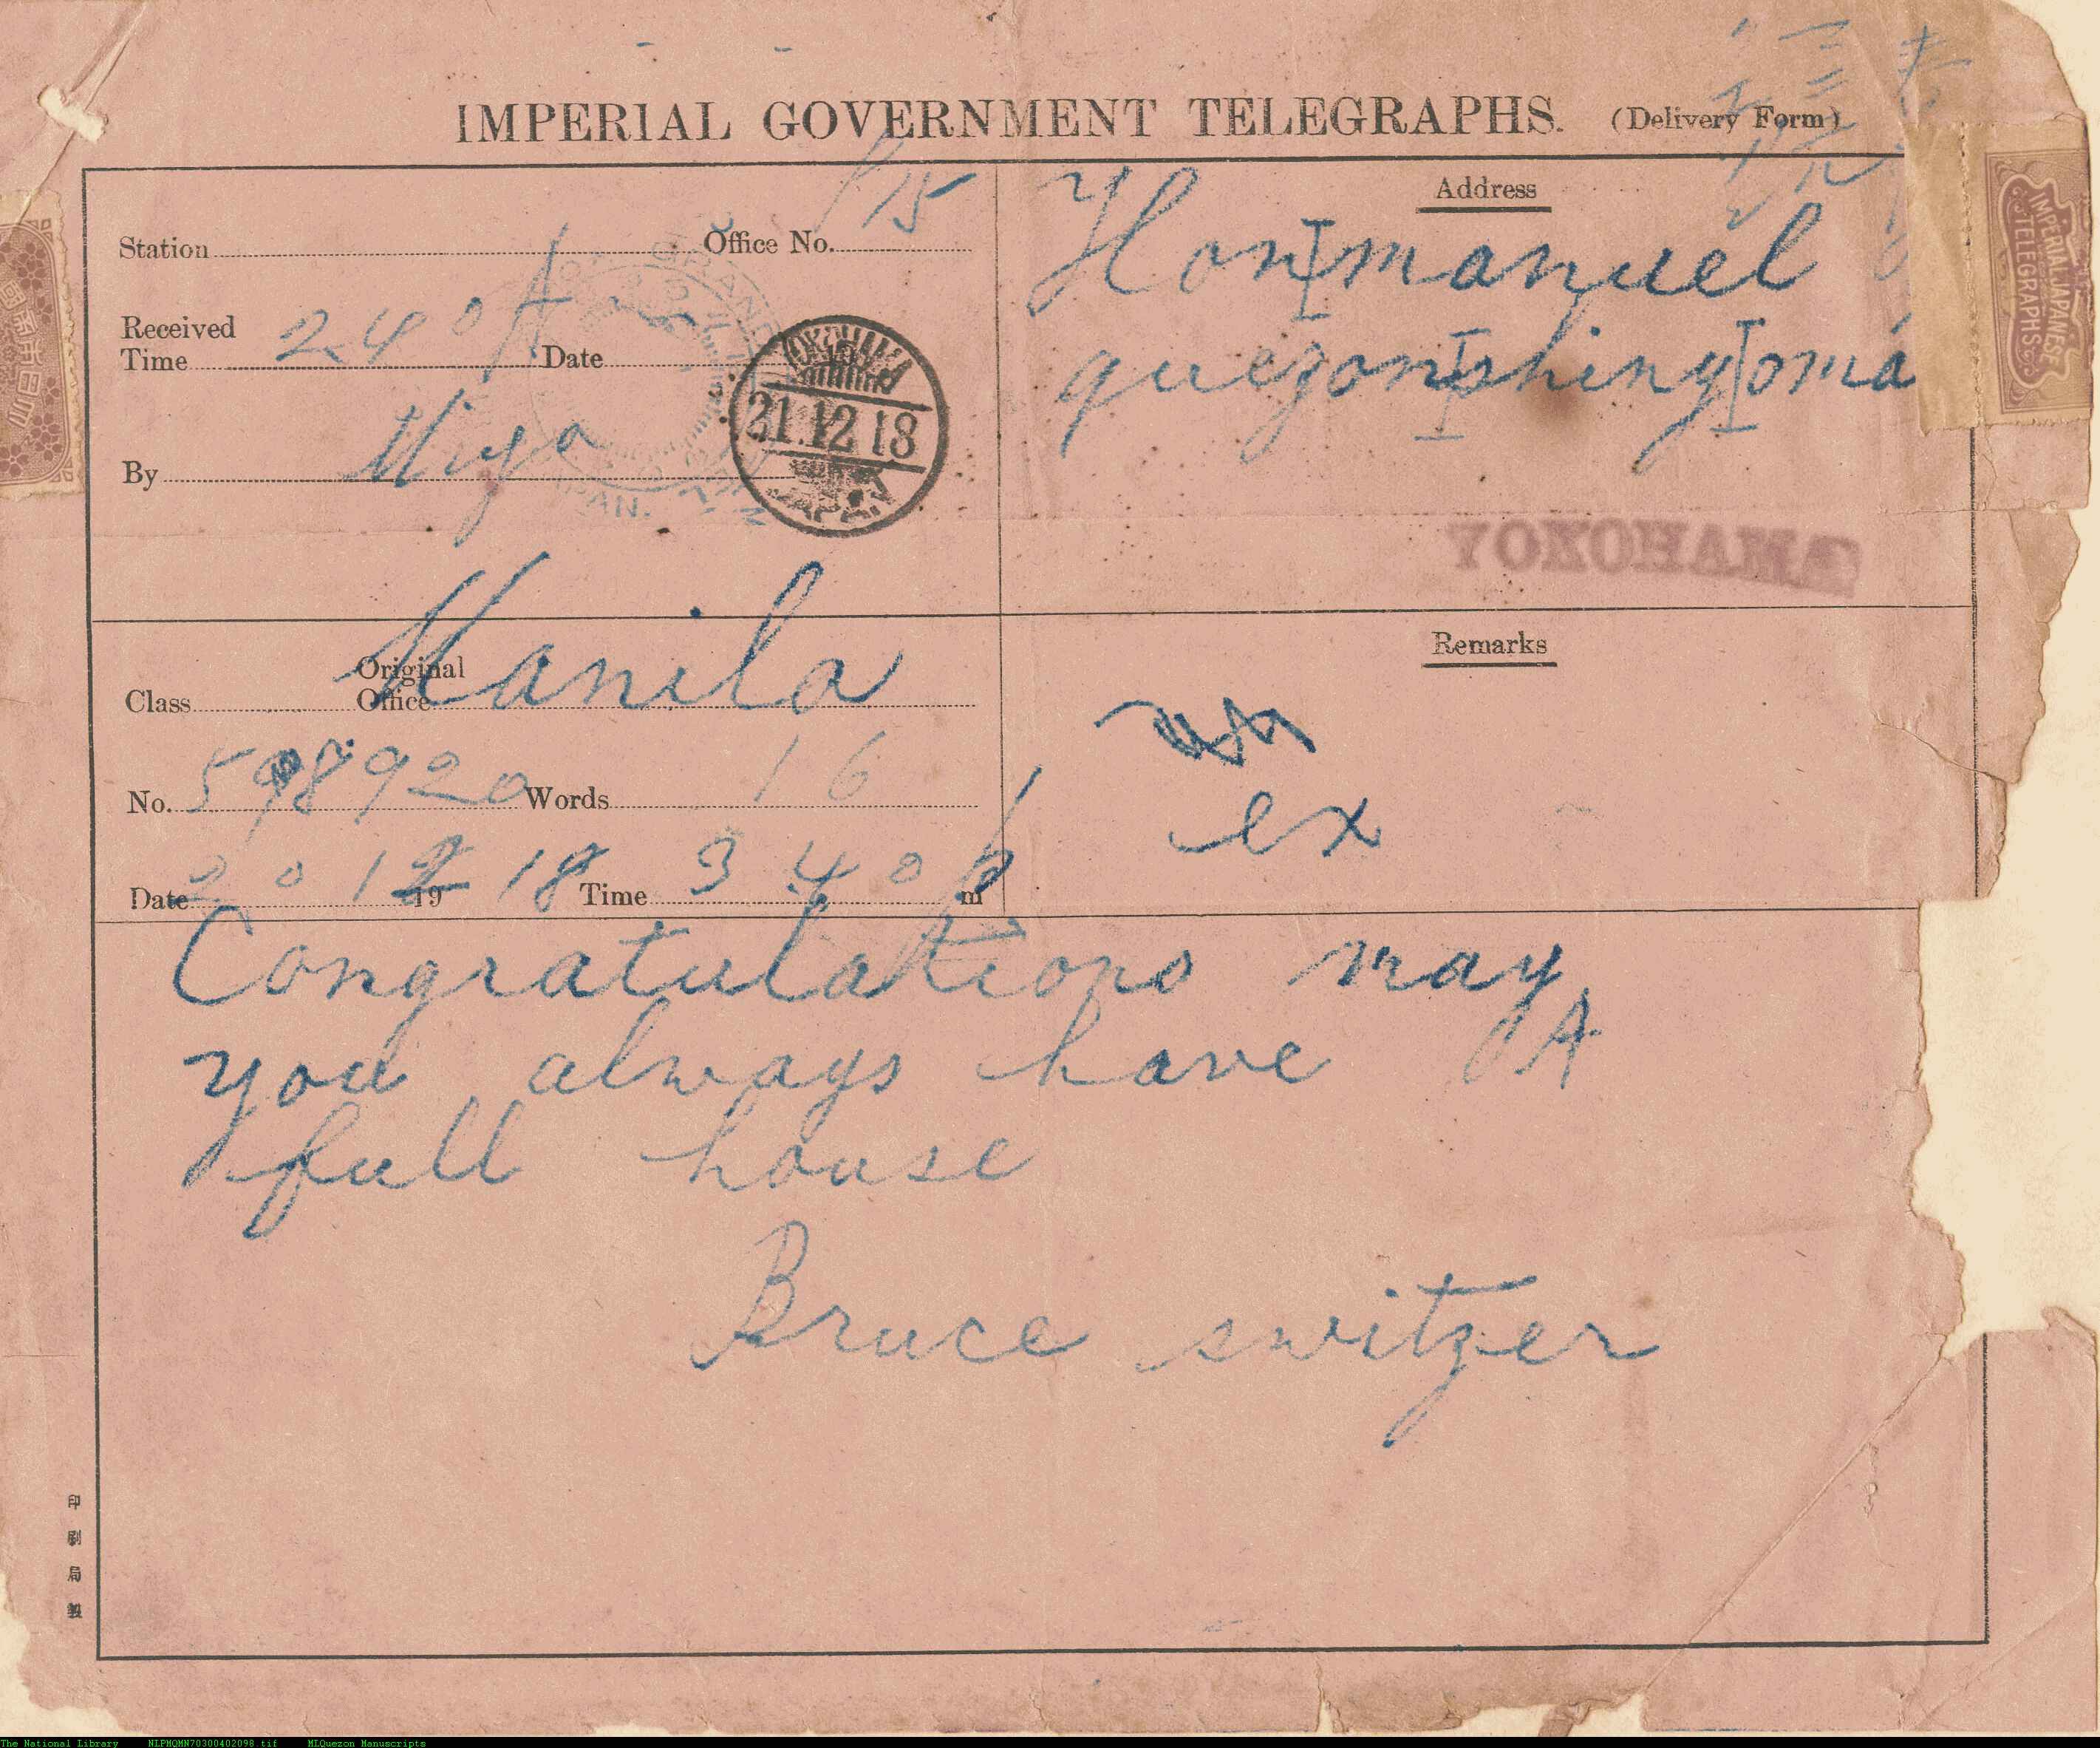 IMPERIAL GOVERNMENT TELEGRAPHS. (Delivery Form)
Station Office No. 15
Received
Time 2 40 A Date
By Miya
21.12.18
Address
Hon manuel
quezon shiny oma
YOKOHAMA
IMPERIAL JAPANESE
TELEGRAPHS
Class Original
Office Manila
No. 598920 Words 16
Date 20 12 1918 Time 3 40 p m
Remarks
ex
Congratulations may
you always have A
full house
Bruce switzer
印刷局製
The National Library NLPMQMN70300402098.tif MLQuezon Manuscripts